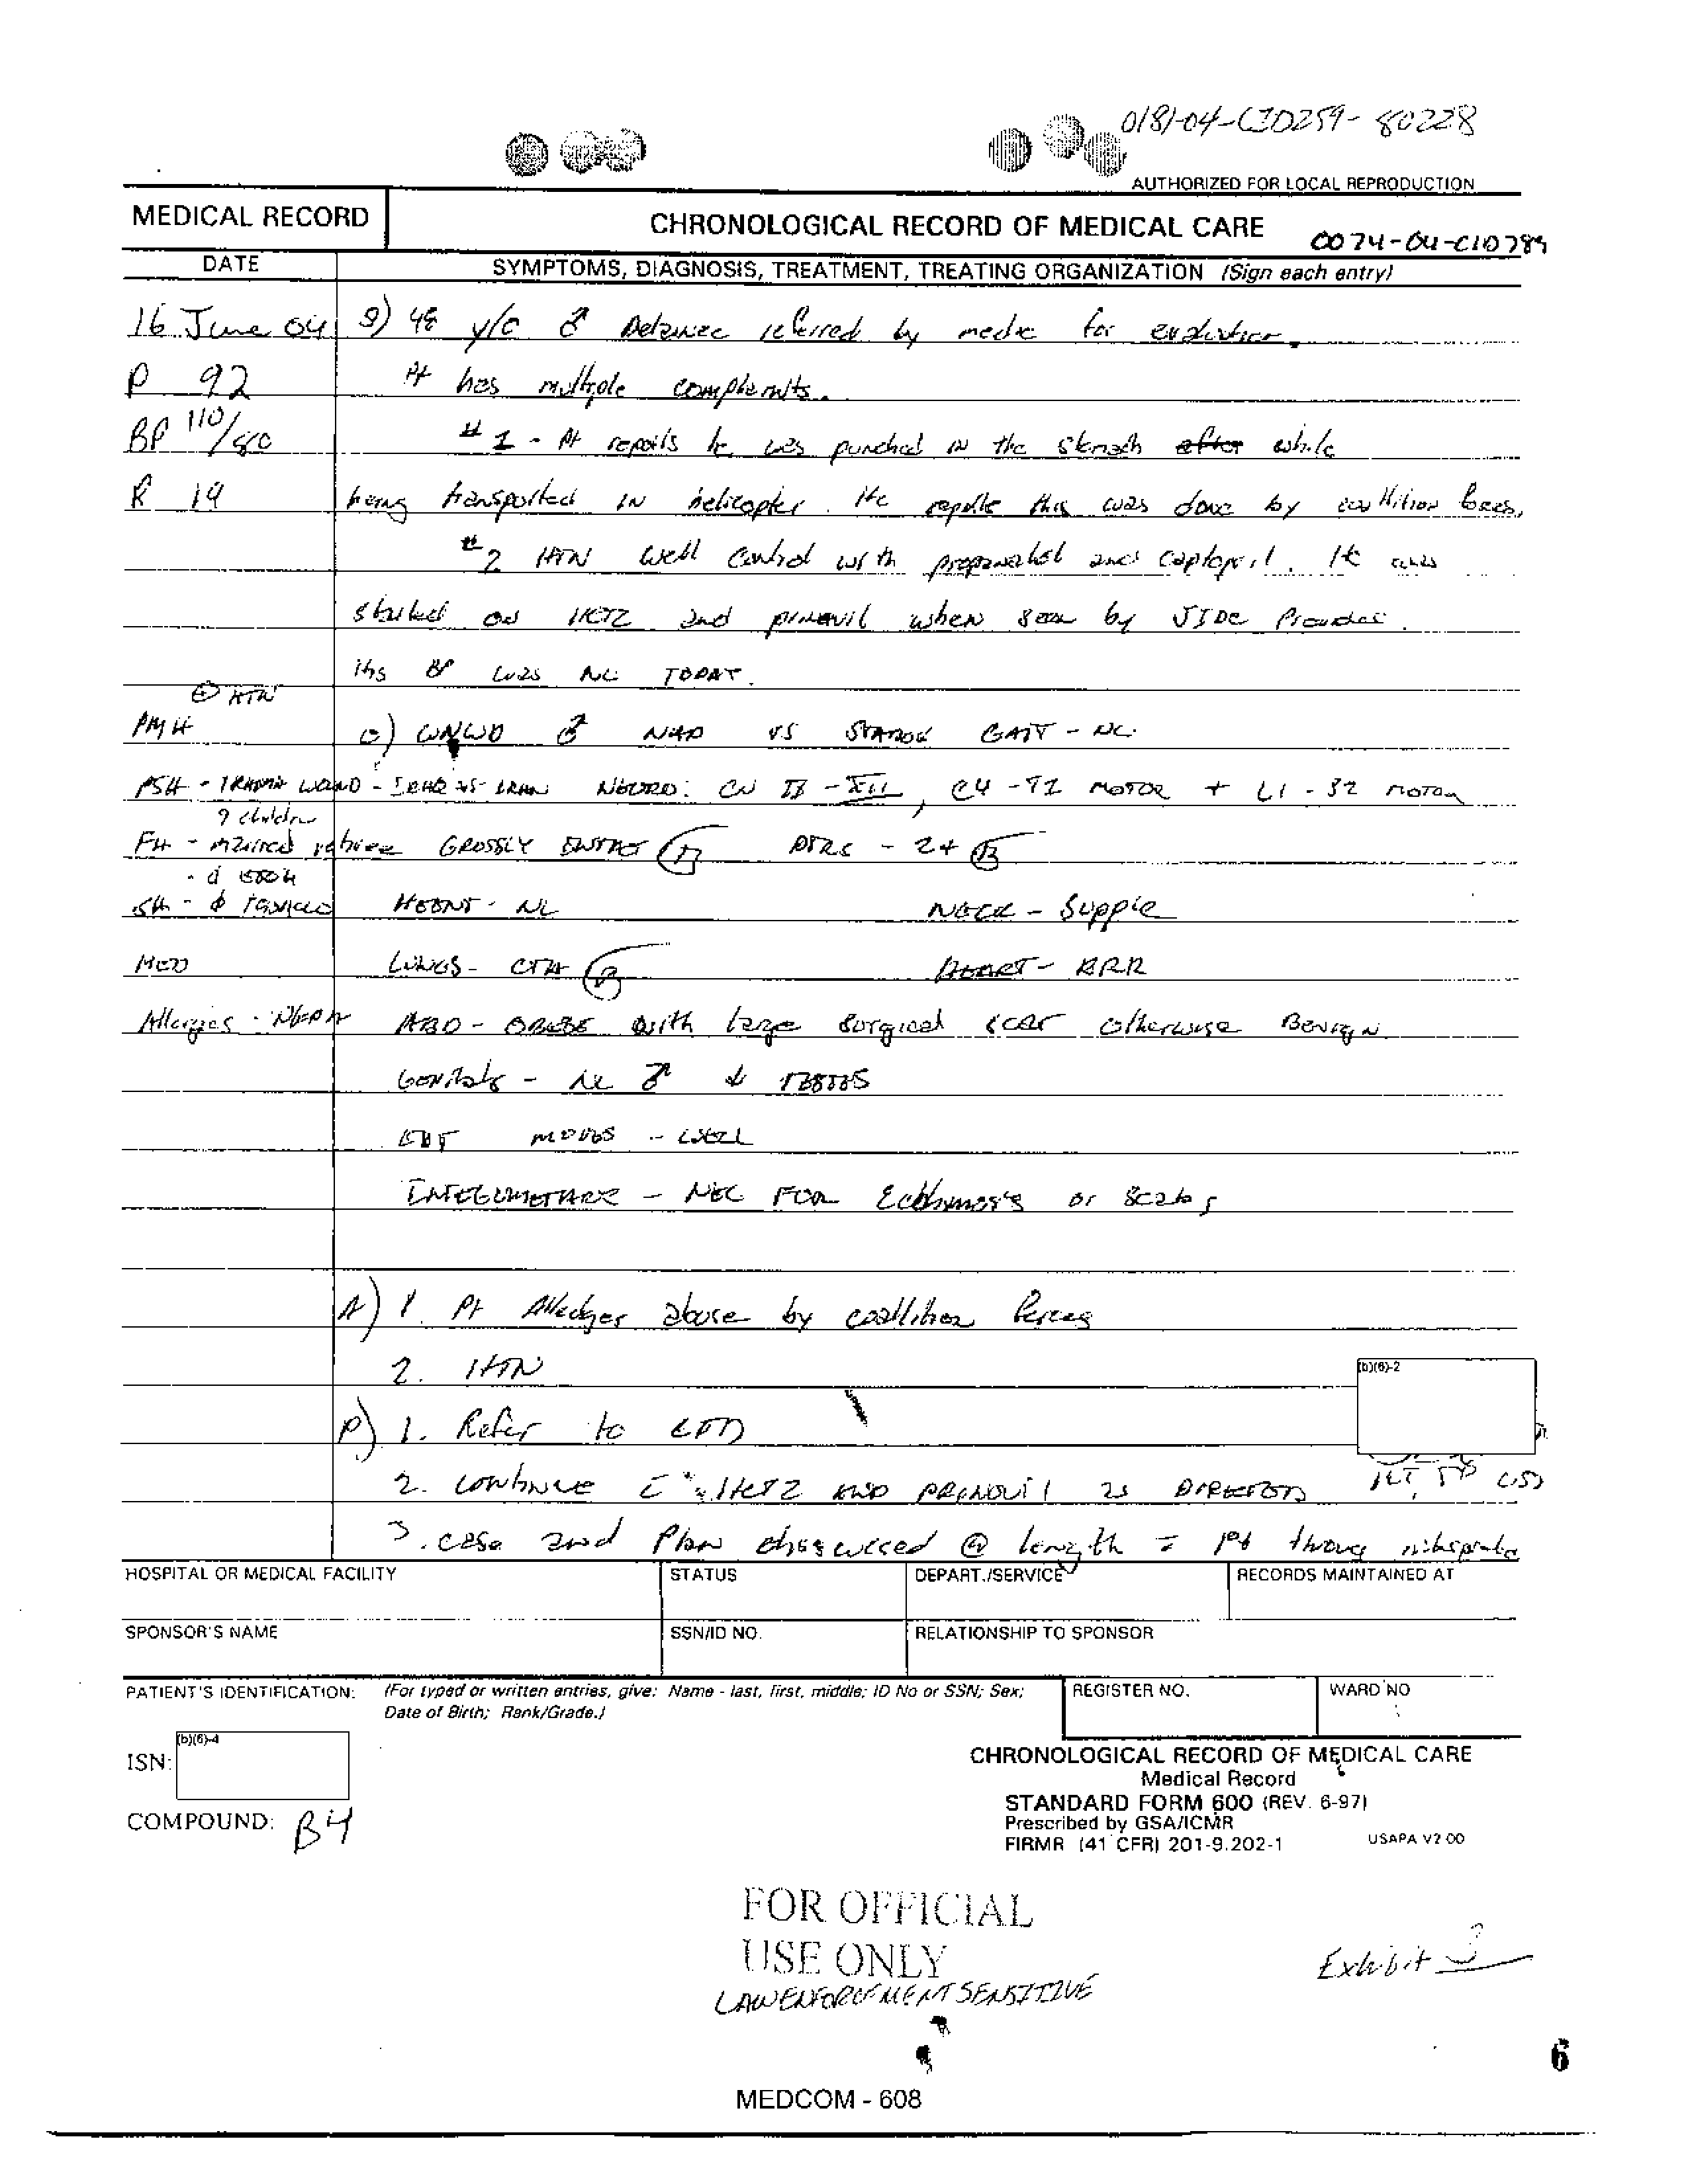 0181-04-CID259-80228
AUTHORIZED FOR LOCAL REPRODUCTION
MEDICAL RECORD
CHRONOLOGICAL RECORD OF MEDICAL CARE
0074-04-CID789
DATE
SYMPTOMS, DIAGNOSIS, TREATMENT, TREATING ORGANIZATION (Sign each entry)
16 June 04 S) 48 y/o ♂ Detainee referred by medic for evaluation.
P 92 Pt has multiple complaints.
BP 110/80 #1 - Pt reports he was punched IN the stomach after while
R 19 being transported IN helicopter. He reports this was done by coalition forces.
#2 HTN well control with propanolol and captopril. He was
started on HCTZ and prinivil when seen by JIDC Provider.
His BP was NL TODAY.
⊕ HTN
PMH O) WNWD ♂ NAD VS STABLE GAIT - NL
PSH - TRAMA WOUND - IRAQ VS IRAN NEURO: CN II - XII, C4 - T1 MOTOR + L1 - S2 MOTOR
9 children
FH - married GROSSLY INTACT B DTRS - 2+ B
SH - ϕ TOBACCO HEENT - NL NECK - Supple
MED LUNGS - CTA B HEART - RRR
Allergies - NKDA ABD - OBESE with large surgical scar otherwise BENIGN
Genitals - NL ♂ ↓ TESTES
EXT MOVES - WELL
INTEGUMETARY - NEG FOR Ecchymosis or Scabs
A) 1. Pt Alledges abuse by coallition forces
2. HTN
(b)(6)-2
P) 1. Refer to CID
2. CONTINUE HCTZ AND PRINOVIL as DIRECTED
3. case and Plan discussed @ length c̄ pt
HOSPITAL OR MEDICAL FACILITY
STATUS
DEPART./SERVICE
RECORDS MAINTAINED AT
SPONSOR'S NAME
SSN/ID NO.
RELATIONSHIP TO SPONSOR
PATIENT'S IDENTIFICATION: (For typed or written entries, give: Name - last, first, middle; ID No or SSN; Sex;
Date of Birth; Rank/Grade.)
REGISTER NO.
WARD NO
(b)(6)-4
ISN:
COMPOUND: B4
CHRONOLOGICAL RECORD OF MEDICAL CARE
Medical Record
STANDARD FORM 600 (REV. 6-97)
Prescribed by GSA/ICMR
FIRMR (41 CFR) 201-9.202-1
USAPA V2.00
FOR OFFICIAL
USE ONLY
LAW ENFORCEMENT SENSITIVE
Exhibit
6
MEDCOM - 608